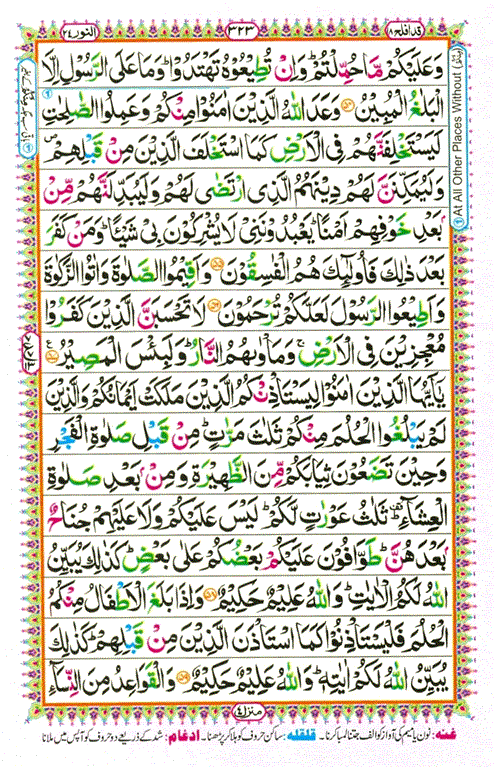 قد افلح ١٨ ٣٢٣ النور ٢٤
وَعَلَيْكُمْ مَّا حُمِّلْتُمْ ؕ وَاِنْ تُطِيْعُوْهُ تَهْتَدُوْا ؕ وَمَا عَلَى الرَّسُوْلِ اِلَّا
الْبَلٰغُ الْمُبِيْنُ ﴿۵۴﴾ وَعَدَ اللّٰهُ الَّذِيْنَ اٰمَنُوْا مِنْكُمْ وَعَمِلُوا الصّٰلِحٰتِ
لَيَسْتَخْلِفَنَّهُمْ فِى الْاَرْضِ كَمَا اسْتَخْلَفَ الَّذِيْنَ مِنْ قَبْلِهِمْ ۪
وَلَيُمَكِّنَنَّ لَهُمْ دِيْنَهُمُ الَّذِى ارْتَضٰى لَهُمْ وَلَيُبَدِّلَنَّهُمْ مِّنْۢ
بَعْدِ خَوْفِهِمْ اَمْنًا ؕ يَعْبُدُوْنَنِىْ لَا يُشْرِكُوْنَ بِىْ شَيْـًٔا ؕ وَمَنْ كَفَرَ
بَعْدَ ذٰلِكَ فَاُولٰٓئِكَ هُمُ الْفٰسِقُوْنَ ﴿۵۵﴾ وَاَقِيْمُوا الصَّلٰوةَ وَاٰتُوا الزَّكٰوةَ
وَاَطِيْعُوا الرَّسُوْلَ لَعَلَّكُمْ تُرْحَمُوْنَ ﴿۵۶﴾ لَا تَحْسَبَنَّ الَّذِيْنَ كَفَرُوْا
مُعْجِزِيْنَ فِى الْاَرْضِ ۚ وَمَاْوٰىهُمُ النَّارُ ؕ وَلَبِئْسَ الْمَصِيْرُ ﴿۵۷﴾
يٰۤاَيُّهَا الَّذِيْنَ اٰمَنُوْا لِيَسْتَاْذِنْكُمُ الَّذِيْنَ مَلَكَتْ اَيْمَانُكُمْ وَالَّذِيْنَ
لَمْ يَبْلُغُوا الْحُلُمَ مِنْكُمْ ثَلٰثَ مَرّٰتٍ ؕ مِنْ قَبْلِ صَلٰوةِ الْفَجْرِ
وَحِيْنَ تَضَعُوْنَ ثِيَابَكُمْ مِّنَ الظَّهِيْرَةِ وَمِنْۢ بَعْدِ صَلٰوةِ
الْعِشَآءِ ؕ ثَلٰثُ عَوْرٰتٍ لَّكُمْ ؕ لَيْسَ عَلَيْكُمْ وَلَا عَلَيْهِمْ جُنَاحٌۢ
بَعْدَهُنَّ ؕ طَوّٰفُوْنَ عَلَيْكُمْ بَعْضُكُمْ عَلٰى بَعْضٍ ؕ كَذٰلِكَ يُبَيِّنُ
اللّٰهُ لَكُمُ الْاٰيٰتِ ؕ وَاللّٰهُ عَلِيْمٌ حَكِيْمٌ ﴿۵۸﴾ وَاِذَا بَلَغَ الْاَطْفَالُ مِنْكُمُ
الْحُلُمَ فَلْيَسْتَاْذِنُوْا كَمَا اسْتَاْذَنَ الَّذِيْنَ مِنْ قَبْلِهِمْ ؕ كَذٰلِكَ
يُبَيِّنُ اللّٰهُ لَكُمْ اٰيٰتِهٖ ؕ وَاللّٰهُ عَلِيْمٌ حَكِيْمٌ ﴿۵۹﴾ وَالْقَوَاعِدُ مِنَ النِّسَآءِ
منزل ٤
غنہ: نون یا میم کی آواز کو الف جتنا لمبا کرنا۔ قلقلہ: ساکن حروف کو ہلا کر پڑھنا۔ ادغام: شد کے ذریعے دو حروف کو آپس میں ملانا
At All Other Places Without